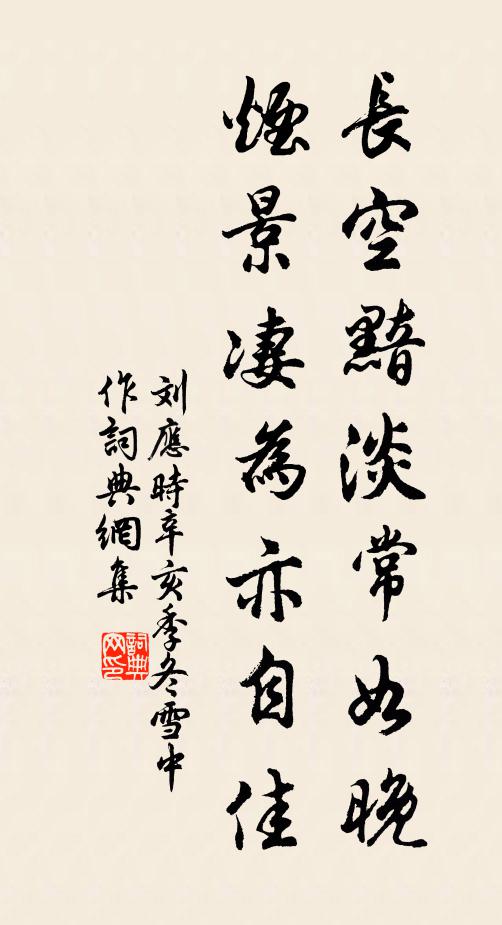 長空黯淡常如晚
煙景凄為亦自佳
刘應時辛亥季冬雪中
作詞典網集
詞典网印